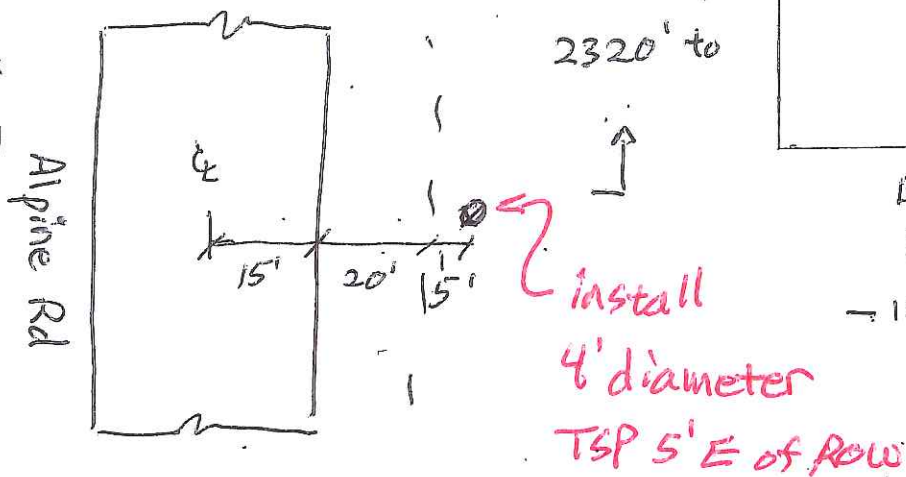 2320' to
Alpine Rd
℄
15'
20'
5'
install
4' diameter
TSP 5' E of ROW